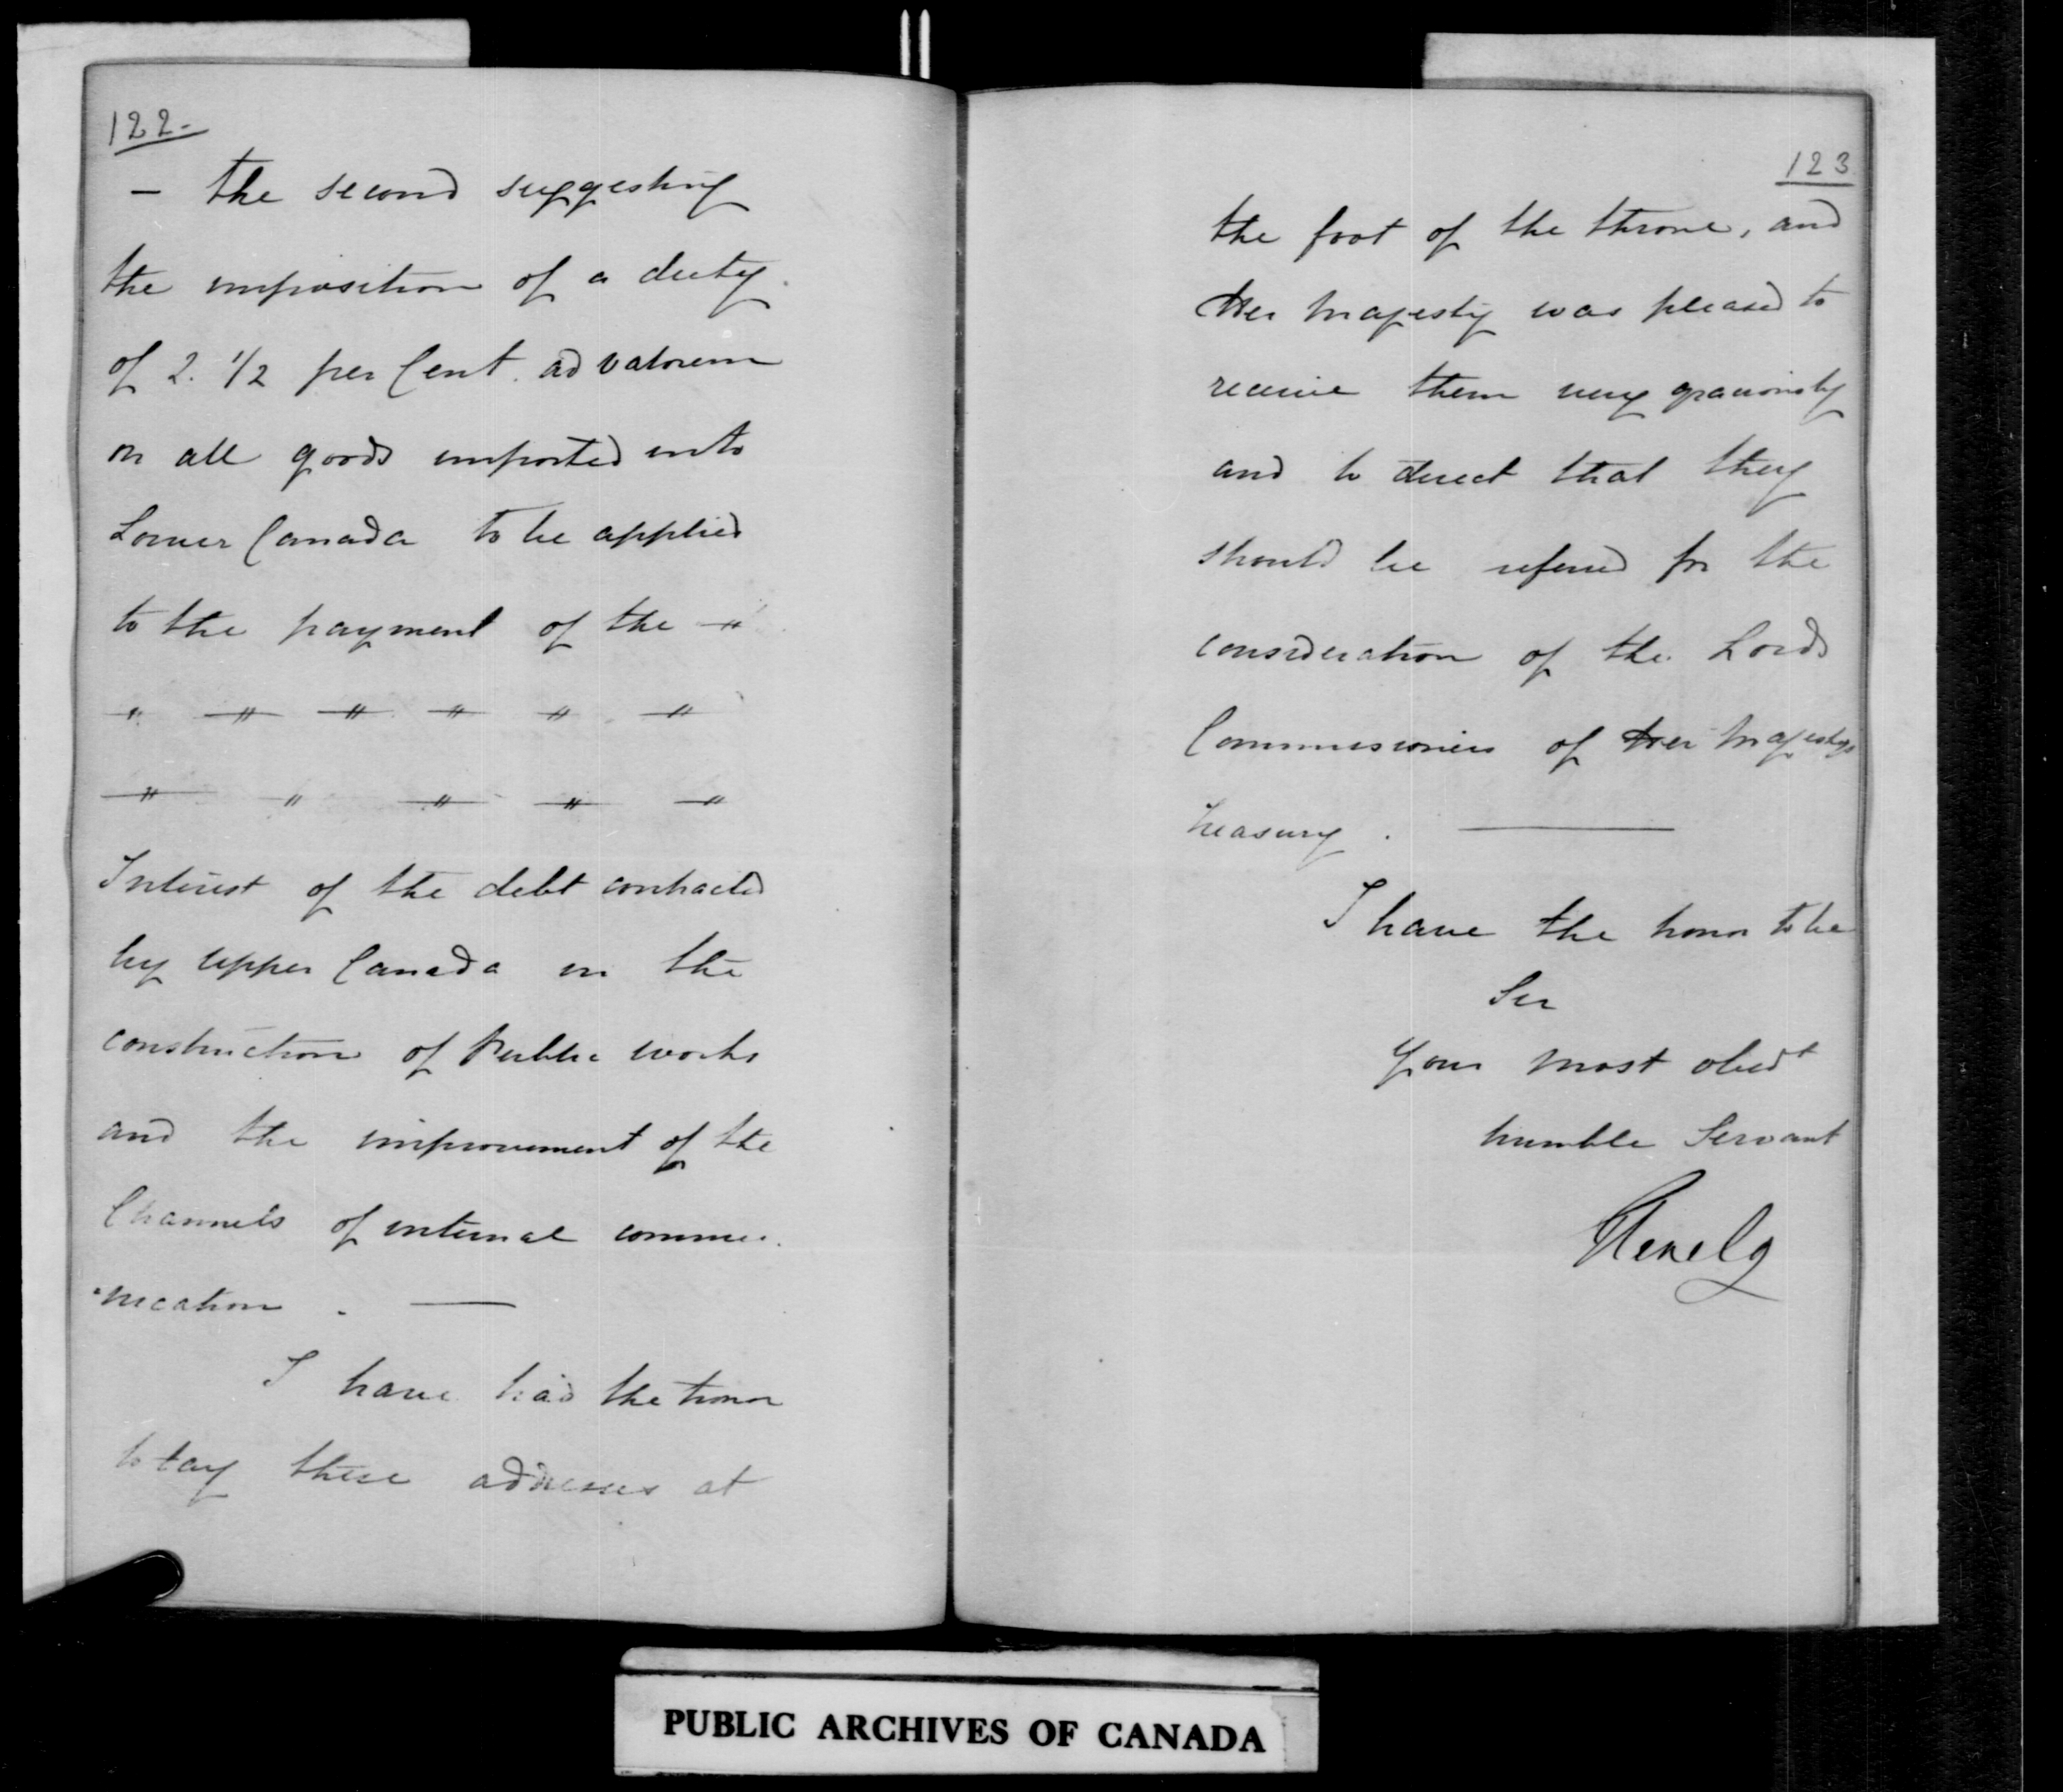 122-
- the second suggesting
the imposition of a duty
of 2. 1/2 per Cent. ad valorem
on all goods imported into
Lower Canada to be applied
to the payment of the "
" " " " " "
" " " " "
Interest of the debt contracted
by Upper Canada in the
construction of Public works
and the improvement of the
Channels of internal commu-
"nication . —
I have had the honor
to lay these addresses at
123
the foot of the throne, and
Her Majesty was pleased to
receive them very graciously
and to direct that they
should be referred for the
consideration of the Lords
Commissioners of Her Majestys
Treasury . —
I have the honor to be
Sir
Your most obedt
humble Servant
Glenelg
PUBLIC ARCHIVES OF CANADA